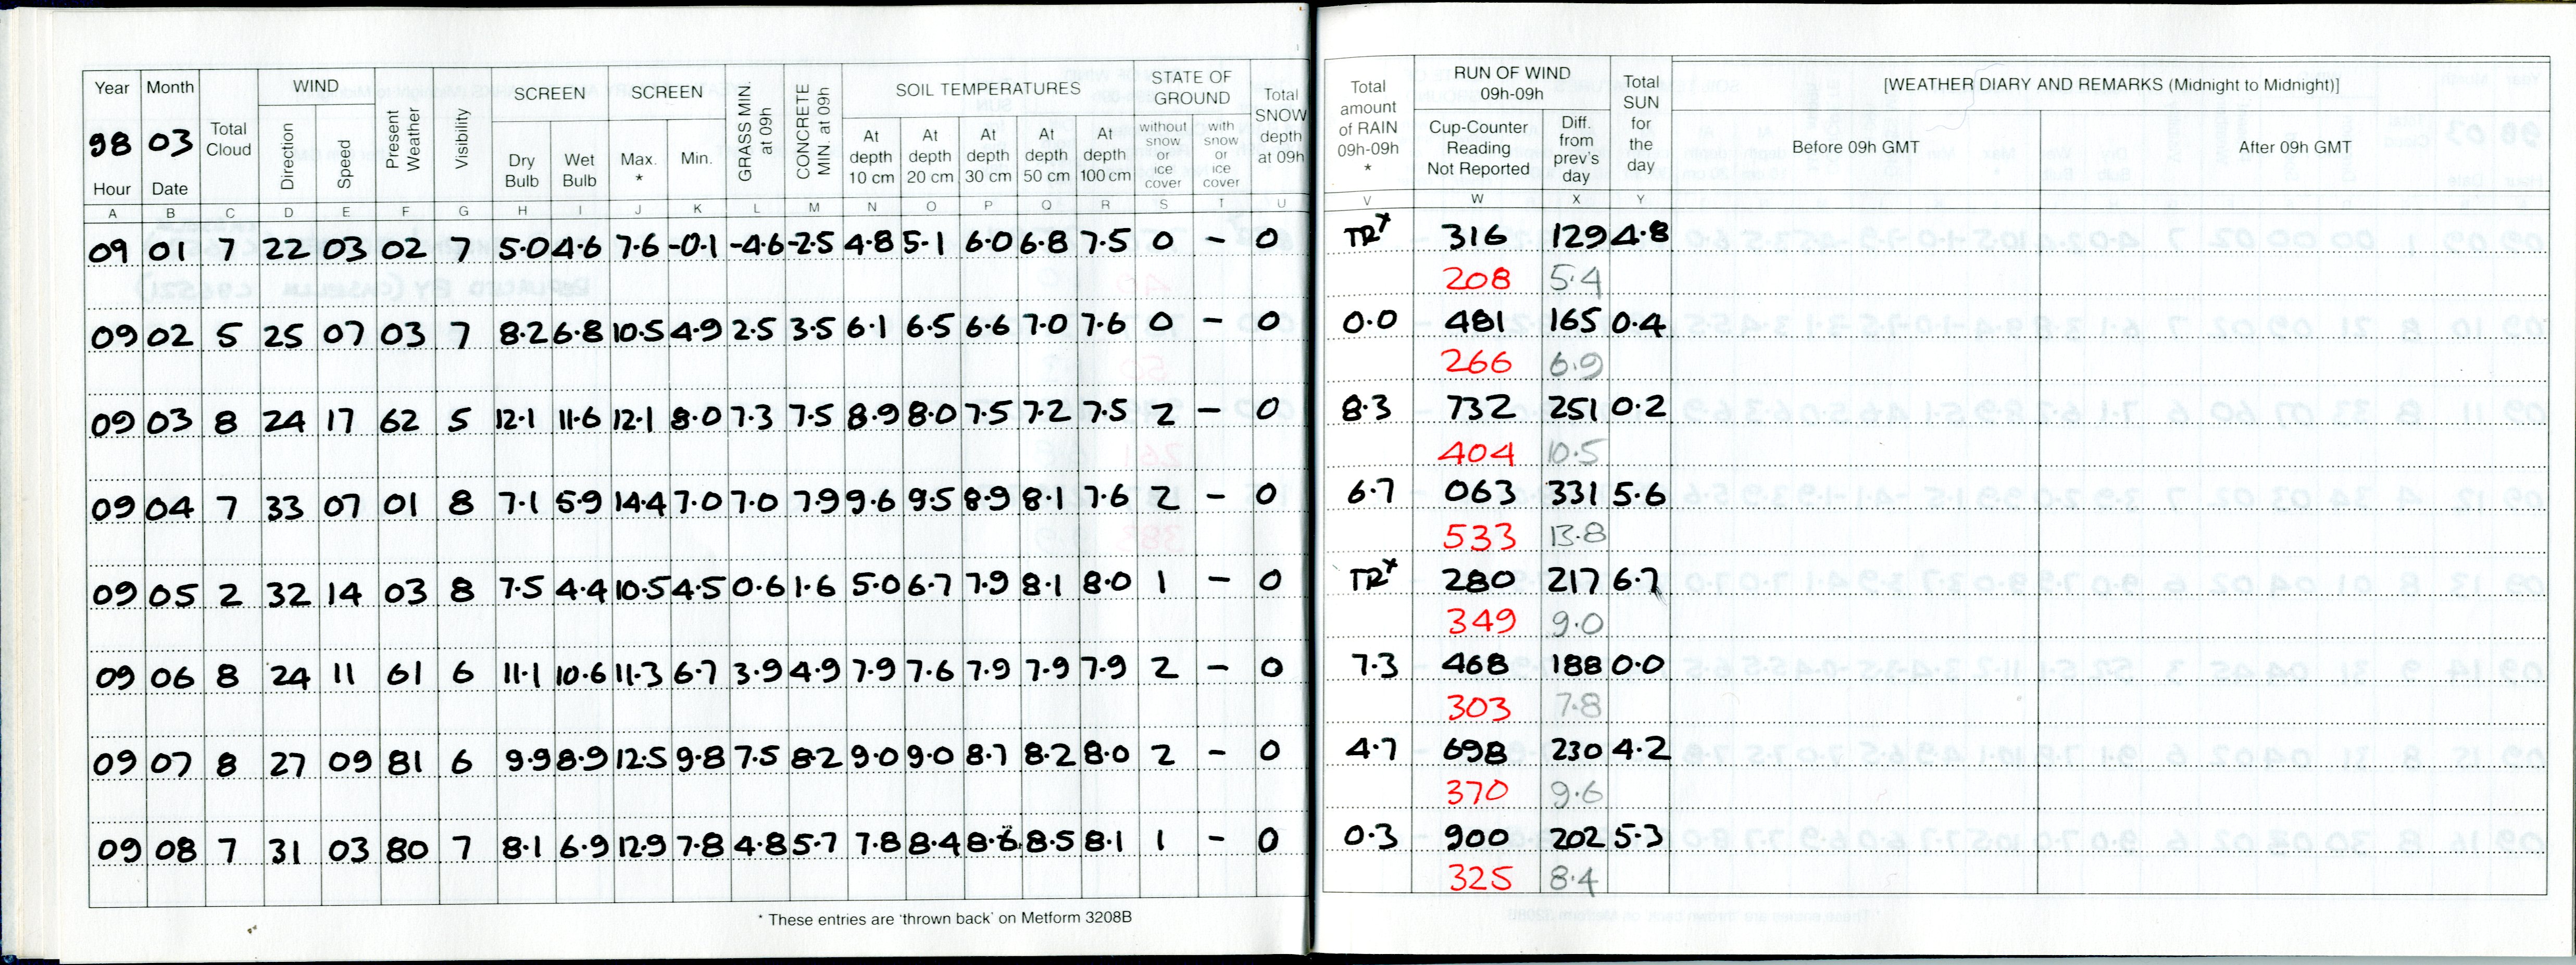 Year Month WIND SCREEN SCREEN SOIL TEMPERATURES STATE OF GROUND
98 03 Total Cloud Direction Speed Present Weather Visibility Dry Bulb Wet Bulb Max. * Min. GRASS MIN. at 09h CONCRETE MIN. at 09h At depth 10 cm At depth 20 cm At depth 30 cm At depth 50 cm At depth 100 cm without snow or ice cover with snow or ice cover Total SNOW depth at 09h
Hour Date
Total amount of RAIN 09h-09h * RUN OF WIND 09h-09h Cup-Counter Reading Not Reported Diff. from prev's day Total SUN for the day [WEATHER DIARY AND REMARKS (Midnight to Midnight)]
Before 09h GMT After 09h GMT
A B C D E F G H I J K L M N O P Q R S T U V W X Y
09 01 7 22 03 02 7 5.0 4.6 7.6 -0.1 -4.6 -2.5 4.8 5.1 6.0 6.8 7.5 0 - 0 TRx 316 129 4.8
208 5.4
09 02 5 25 07 03 7 8.2 6.8 10.5 4.9 2.5 3.5 6.1 6.5 6.6 7.0 7.6 0 - 0 0.0 481 165 0.4
266 6.9
09 03 8 24 17 62 5 12.1 11.6 12.1 8.0 7.3 7.5 8.9 8.0 7.5 7.2 7.5 2 - 0 8.3 732 251 0.2
404 10.5
09 04 7 33 07 01 8 7.1 5.9 14.4 7.0 7.0 7.9 9.6 9.5 8.9 8.1 7.6 2 - 0 6.7 063 331 5.6
533 13.8
09 05 2 32 14 03 8 7.5 4.4 10.5 4.5 0.6 1.6 5.0 6.7 7.9 8.1 8.0 1 - 0 TRx 280 217 6.7
349 9.0
09 06 8 24 11 61 6 11.1 10.6 11.3 6.7 3.9 4.9 7.9 7.6 7.9 7.9 7.9 2 - 0 7.3 468 188 0.0
303 7.8
09 07 8 27 09 81 6 9.9 8.9 12.5 9.8 7.5 8.2 9.0 9.0 8.7 8.2 8.0 2 - 0 4.7 698 230 4.2
370 9.6
09 08 7 31 03 80 7 8.1 6.9 12.9 7.8 4.8 5.7 7.8 8.4 8.6 8.5 8.1 1 - 0 0.3 900 202 5.3
325 8.4
* These entries are 'thrown back' on Metform 3208B